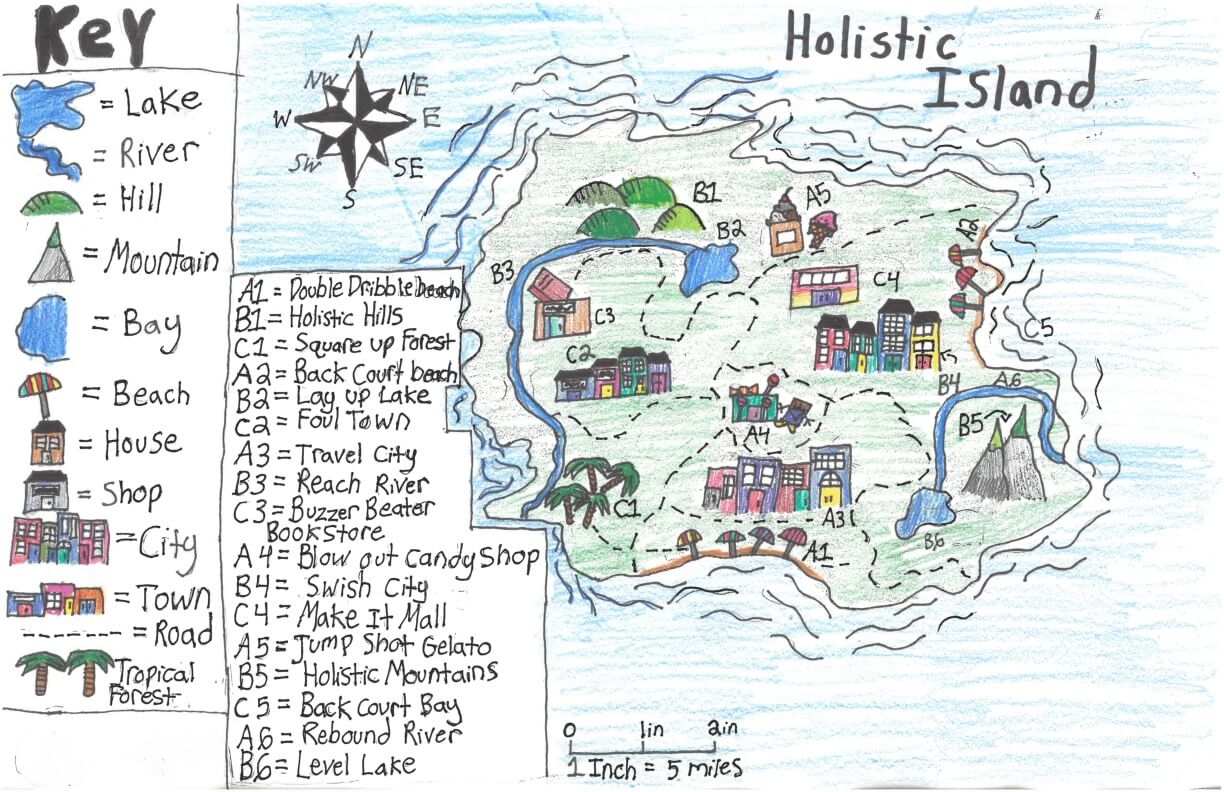 Key
= Lake
= River
= Hill
= Mountain
= Bay
= Beach
= House
= Shop
= City
= Town
= Road
Tropical
Forest
N
NW
NE
W
E
SW
SE
S
Holistic
Island
A1 = Double Dribble beach
B1 = Holistic Hills
C1 = Square up Forest
A2 = Back Court beach
B2 = Lay up Lake
C2 = Foul Town
A3 = Travel City
B3 = Reach River
C3 = Buzzer Beater
Bookstore
A4 = Blow out candy Shop
B4 = Swish City
C4 = Make It Mall
A5 = Jump Shot Gelato
B5 = Holistic Mountains
C5 = Back Court Bay
A6 = Rebound River
B6 = Level Lake
B1
A5
B2
A2
B3
C4
C3
C5
C2
B4
A6
B5
A4
C1
A3
B6
A1
0 1in 2in
1 Inch = 5 miles